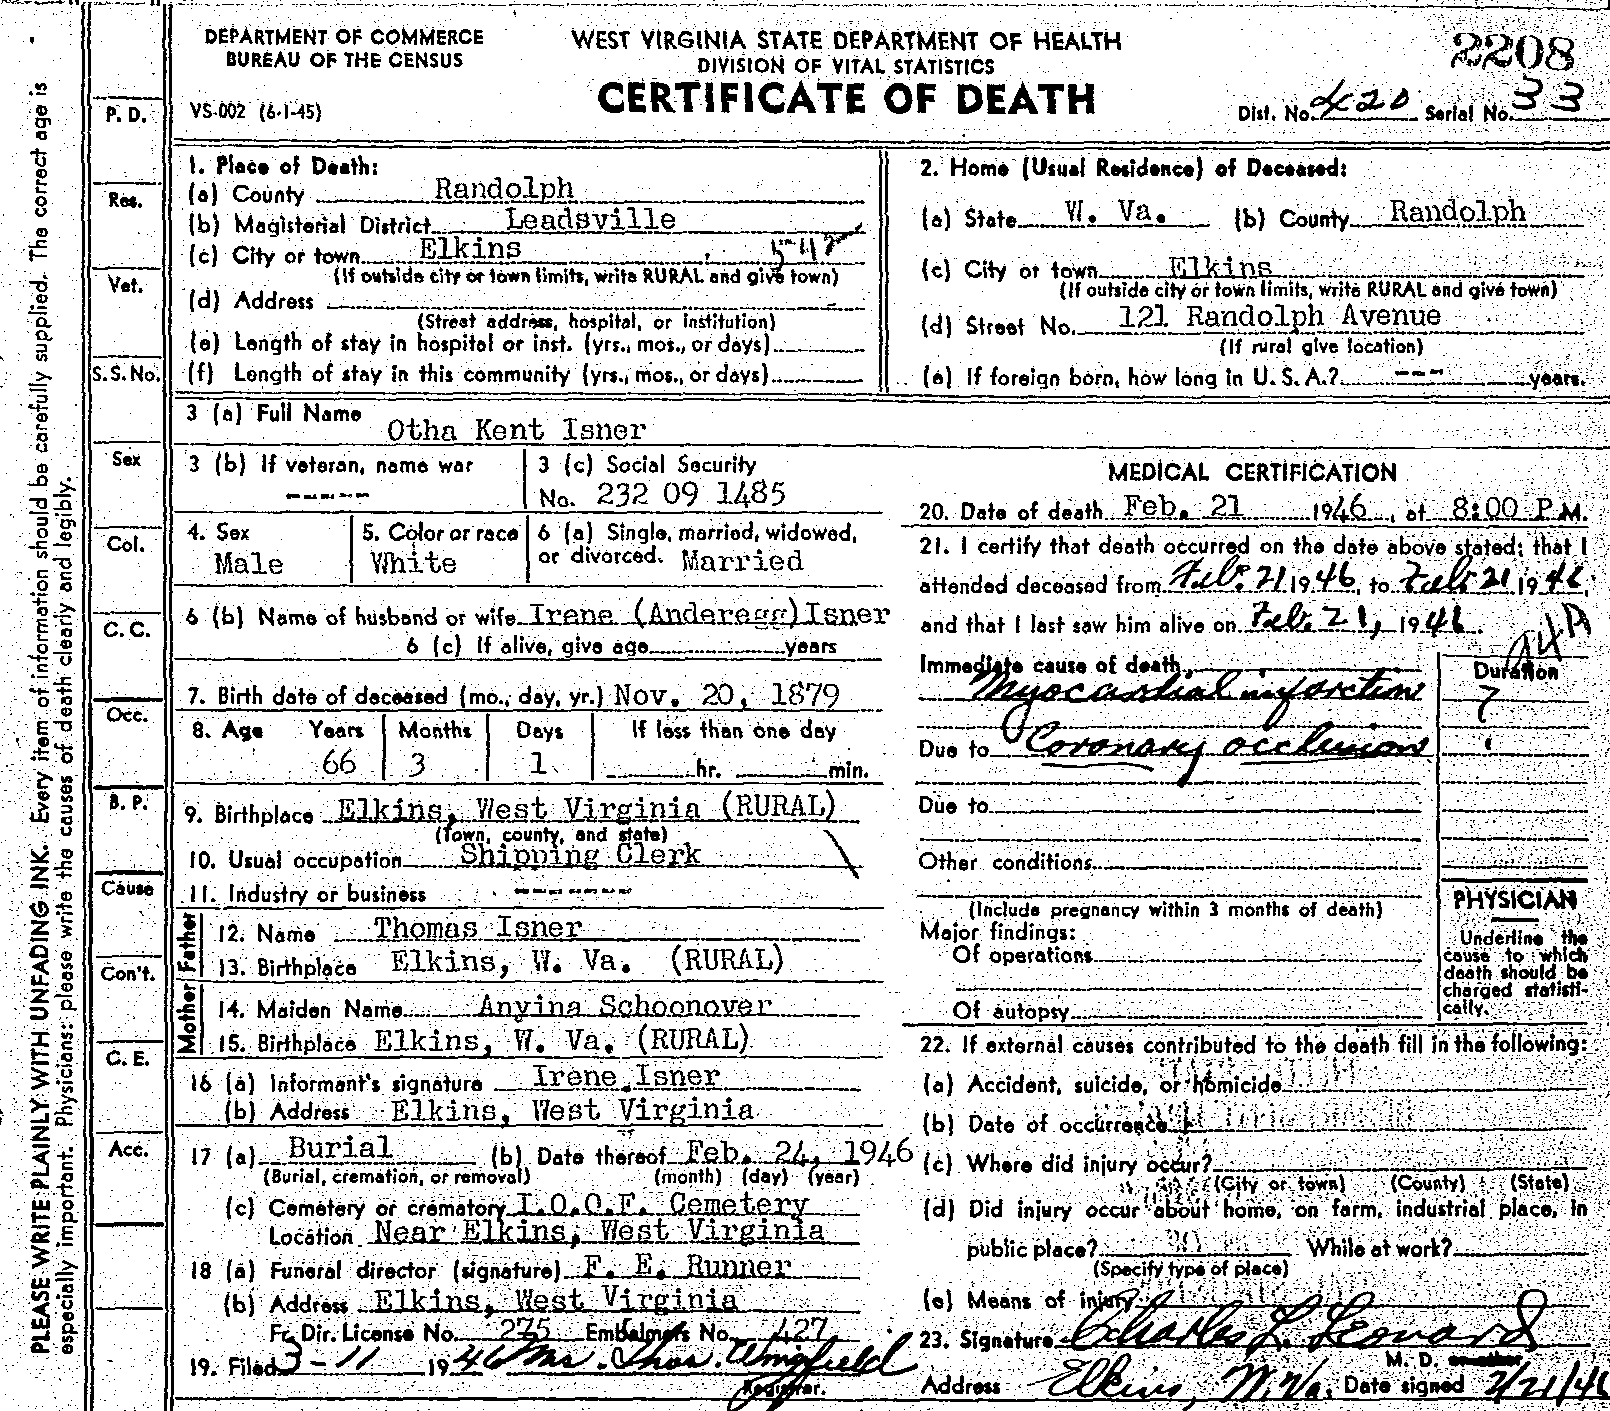 DEPARTMENT OF COMMERCE
BUREAU OF THE CENSUS
VS-002 (6-1-45)
WEST VIRGINIA STATE DEPARTMENT OF HEALTH
DIVISION OF VITAL STATISTICS
CERTIFICATE OF DEATH
2208
Dist. No. 420 Serial No. 33
PLEASE WRITE PLAINLY WITH UNFADING INK. Every item of information should be carefully supplied. The correct age is
especially important. Physicians: please write the causes of death clearly and legibly.
P. D.
Res.
Vet.
S.S. No.
Sex
Col.
C. C.
Occ.
B. P.
Cause
Con't.
C. E.
Acc.
1. Place of Death:
(a) County Randolph
(b) Magisterial District Leadsville
(c) City or town Elkins 542
(If outside city or town limits, write RURAL and give town)
(d) Address
(Street address, hospital, or institution)
(e) Length of stay in hospital or inst. (yrs., mos., or days)
(f) Length of stay in this community (yrs., mos., or days)
2. Home (Usual Residence) of Deceased:
(a) State W. Va. (b) County Randolph
(c) City or town Elkins
(If outside city or town limits, write RURAL and give town)
(d) Street No. 121 Randolph Avenue
(If rural give location)
(e) If foreign born, how long in U. S. A.? --- years.
3 (a) Full Name Otha Kent Isner
3 (b) If veteran, name war -----
3 (c) Social Security
No. 232 09 1485
4. Sex Male
5. Color or race White
6 (a) Single, married, widowed,
or divorced. Married
6 (b) Name of husband or wife Irene (Anderegg) Isner
6 (c) If alive, give age years
7. Birth date of deceased (mo., day, yr.) Nov. 20, 1879
8. Age Years Months Days If less than one day
66 3 1 hr. min.
9. Birthplace Elkins, West Virginia (RURAL)
(Town, county, and state)
10. Usual occupation Shipping Clerk
11. Industry or business ------
Father
12. Name Thomas Isner
13. Birthplace Elkins, W. Va. (RURAL)
Mother
14. Maiden Name Anyina Schoonover
15. Birthplace Elkins, W. Va. (RURAL)
16 (a) Informant's signature Irene Isner
(b) Address Elkins, West Virginia
17 (a) Burial (b) Date thereof Feb. 24, 1946
(Burial, cremation, or removal) (month) (day) (year)
(c) Cemetery or crematory I.O.O.F. Cemetery
Location Near Elkins, West Virginia
18 (a) Funeral director (signature) F. E. Runner
(b) Address Elkins, West Virginia
Fr. Dir. License No. 275 Embalmers No. 427
19. Filed 3-11 1946 Mrs. Thos. Wingfield
Registrar.
MEDICAL CERTIFICATION
20. Date of death Feb. 21 1946, at 8:00 P.M.
21. I certify that death occurred on the date above stated; that I
attended deceased from Feb. 21 1946, to Feb. 21 1946,
and that I last saw him alive on Feb. 21, 1946.
94A
Immediate cause of death Duration
Myocardial infarction ?
Due to Coronary occlusion
Due to
Other conditions
(Include pregnancy within 3 months of death)
Major findings:
Of operations
Of autopsy
PHYSICIAN
Underline the
cause to which
death should be
charged statisti-
cally.
22. If external causes contributed to the death fill in the following:
(a) Accident, suicide, or homicide
(b) Date of occurrence
(c) Where did injury occur?
(City or town) (County) (State)
(d) Did injury occur about home, on farm, industrial place, in
public place? While at work?
(Specify type of place)
(e) Means of injury
23. Signature Charles L. Leonard
M. D. or other
Address Elkins, W. Va. Date signed 2/21/46